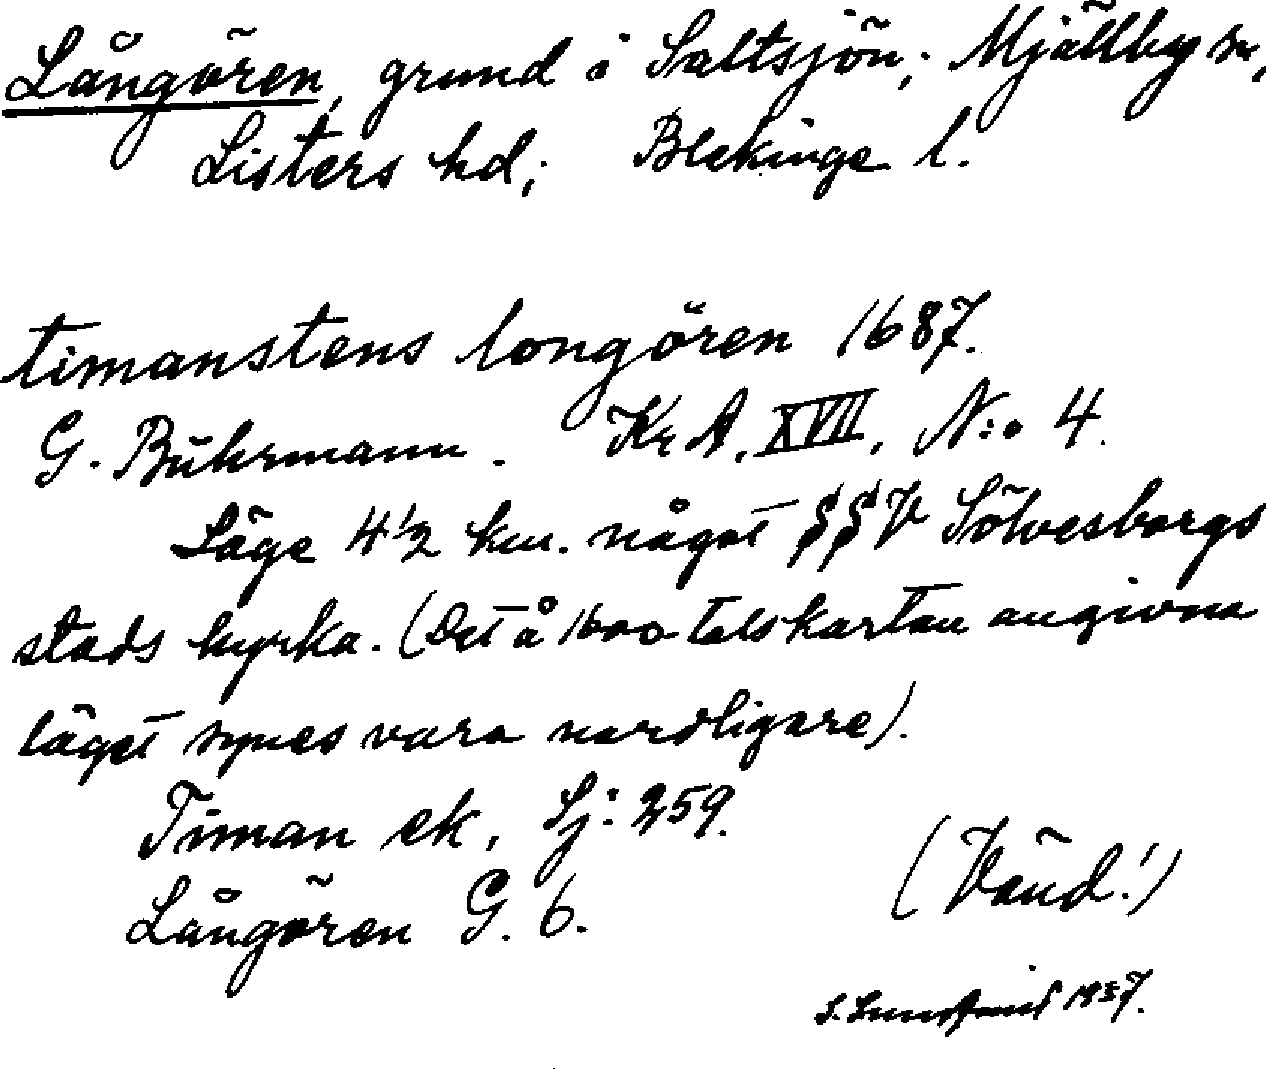 Långören, grund i Saltsjön; Mjällby sn,
Listers hd; Blekinge l.
timanstens longören 1687.
G. Bührmann. Kr A, XVII, N:o 4.
Läge 4 1/2 km. något SSV Sölvesborgs
stads kyrka. (Det å 1600 talskartan angivna
läget synes vara nordligare).
Timan ek, Sj: 259.
Långören G. 6.
(Vänd!)
1937.